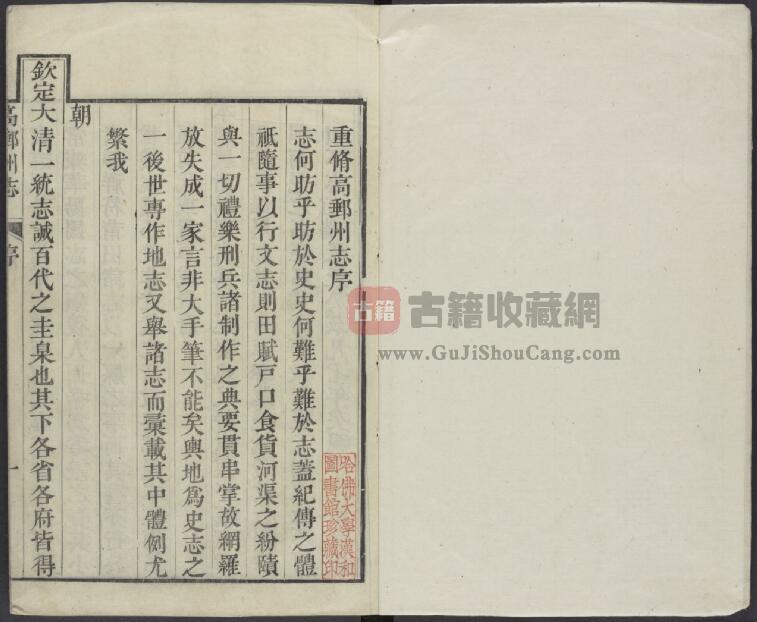 重脩高郵州志序
志何昉乎昉於史史何難乎難於志蓋紀傳之體
祇隨事以行文志則田賦戶口食貨河渠之紛賾
與一切禮樂刑兵諸制作之典要貫串掌故網羅
放失成一家言非大手筆不能矣輿地爲史志之
一後世專作地志又舉諸志而彙載其中體例尤
繁我
朝
欽定大清一統志誠百代之圭臬也其下各省各府皆得
高郵州志
序
一
哈佛大學漢和
圖書館珍藏印
古籍
古籍收藏網
www.GuJiShouCang.com